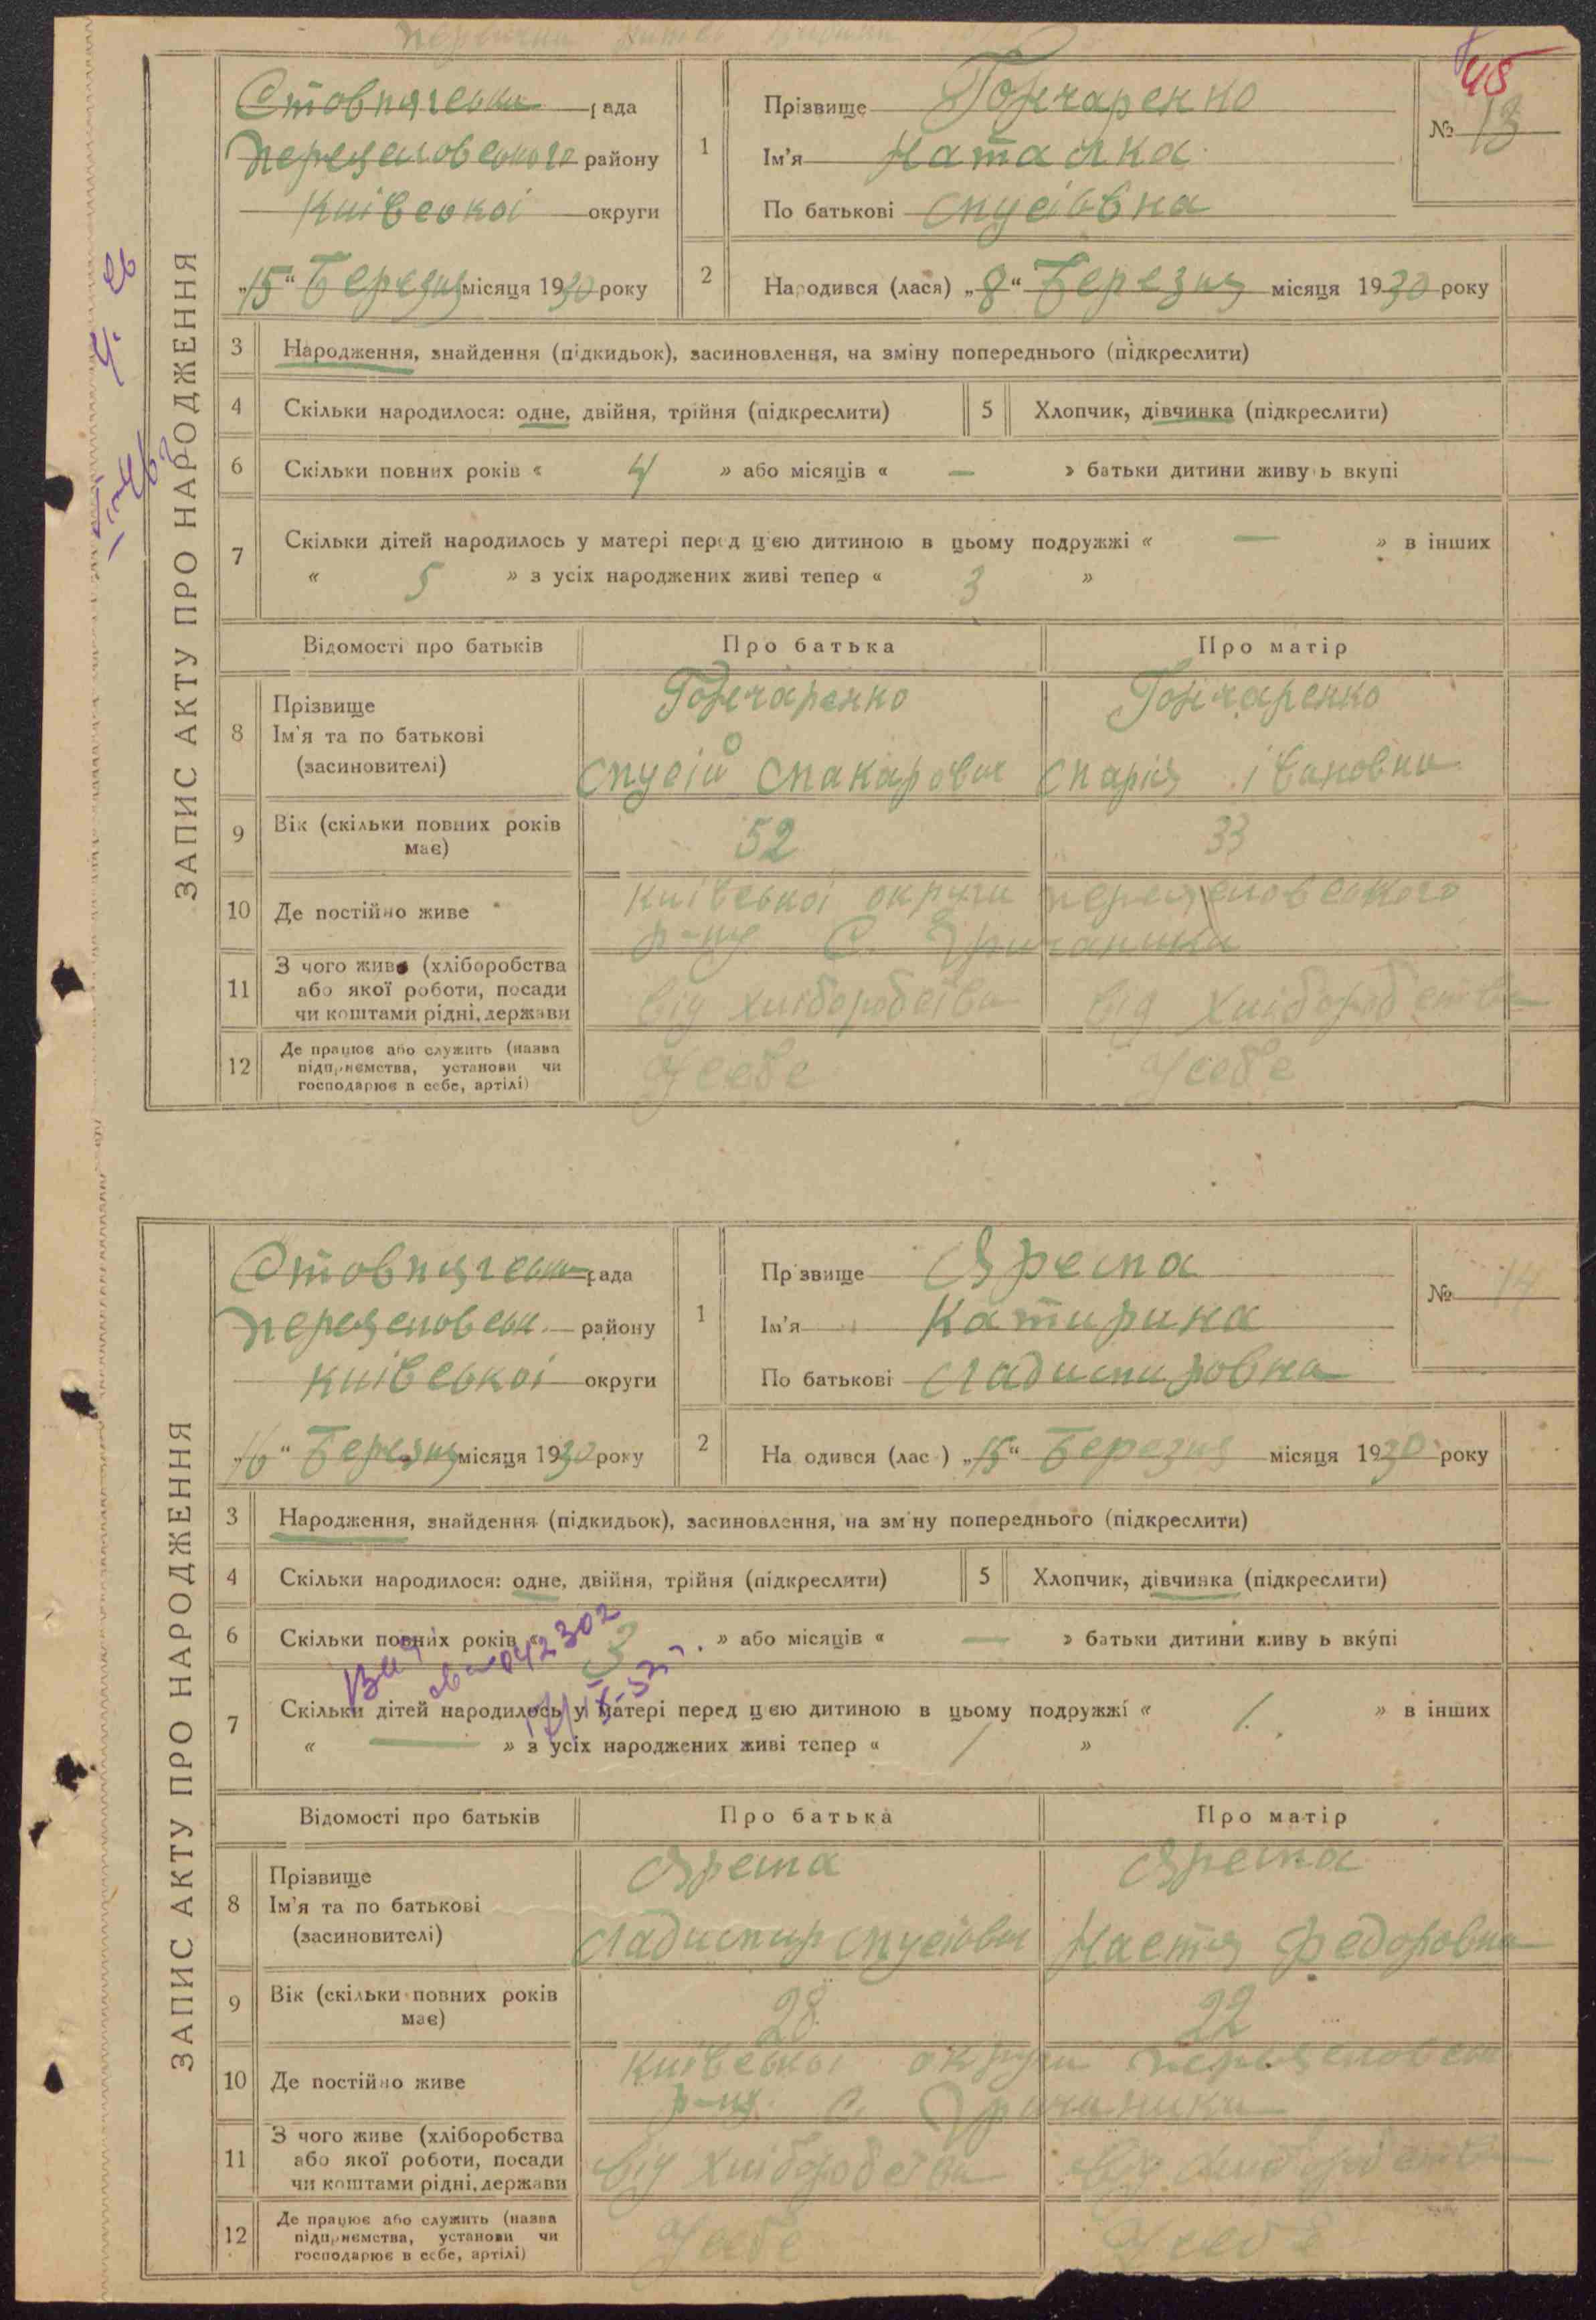 45
Стовпягська рада
Переяславського району
Київської округи
„15“ Березня місяця 1930 року
1
Прізвище Гончаренко
Ім'я Наталка
По батькові Мусіївна
№ 13
2
Народився (лася) „8“ Березня місяця 1930 року
ЗАПИС АКТУ ПРО НАРОДЖЕННЯ
3 Народження, знайдення (підкидьок), засиновлення, на зміну попереднього (підкреслити)
4 Скільки народилося: одне, двійня, трійня (підкреслити) 5 Хлопчик, дівчинка (підкреслити)
6 Скільки повних років « 4 » або місяців « — » батьки дитини живуть вкупі
7 Скільки дітей народилось у матері перед цією дитиною в цьому подружжі « — » в інших
« 5 » з усіх народжених живі тепер « 3 »
Відомості про батьків Про батька Про матір
8 Прізвище
Ім'я та по батькові
(засиновителі)
Гончаренко Гончаренко
Мусій Макарович Марія Івановна
9 Вік (скільки повних років
має)
52 33
10 Де постійно живе
Київської округи Переяславського
р-ну С.
11 З чого живе (хліборобства
або якої роботи, посади
чи коштами рідні, держави
від хліборобства від хліборобства
12 Де працює або служить (назва
підприємства, установи чи
господарює в себе, артілі)
У себе У себе
Стовпягська рада
Переяславськ. району
Київської округи
„16“ Березня місяця 1930 року
1
Прізвище Ярема
Ім'я Катирина
По батькові Владимировна
№ 14
2
Народився (лась) „15“ Березня місяця 1930 року
ЗАПИС АКТУ ПРО НАРОДЖЕННЯ
3 Народження, знайдення (підкидьок), засиновлення, на зміну попереднього (підкреслити)
4 Скільки народилося: одне, двійня, трійня (підкреслити) 5 Хлопчик, дівчинка (підкреслити)
6 Скільки повних років « 3 » або місяців « — » батьки дитини живуть вкупі
7 Скільки дітей народилось у матері перед цією дитиною в цьому подружжі « 1. » в інших
« — » з усіх народжених живі тепер « 1 »
Відомості про батьків Про батька Про матір
8 Прізвище
Ім'я та по батькові
(засиновителі)
Ярема Ярема
Владимир Мусіович Настя Федоровна
9 Вік (скільки повних років
має)
28 22
10 Де постійно живе
Київської округи Переяславськ
р-ну. С.
11 З чого живе (хліборобства
або якої роботи, посади
чи коштами рідні, держави
від хліборобства від хліборобства
12 Де працює або служить (назва
підприємства, установи чи
господарює в себе, артілі)
У себе У себе